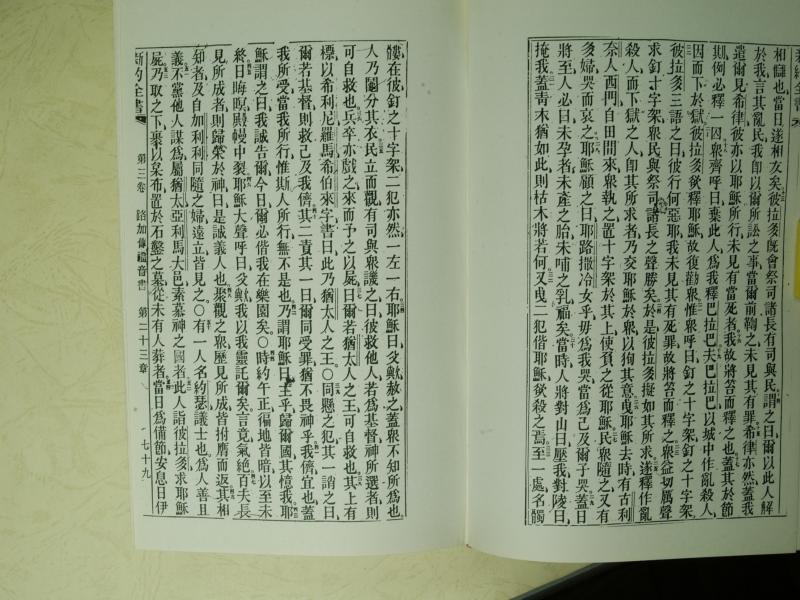 相讎也當日遂相友矣彼拉多旣會祭司諸長有司與民謂之曰爾以此人解
於我言其亂民我卽以爾所訟之事當爾前鞫之未見其有罪希律亦然蓋我
遣爾見希律彼亦以耶穌所行未見有當死者我故將笞而釋之也蓋其於節
期例必釋一囚衆齊呼曰棄此人爲我釋巴拉巴夫巴拉巴以城中作亂殺人
因而下於獄彼拉多欲釋耶穌故復勸衆惟衆呼曰釘之十字架釘之十字架
彼拉多三語之曰彼行何惡耶我未見其有死罪故將笞而釋之衆益切厲聲
求釘十字架衆民與祭司諸長之聲勝矣於是彼拉多擬如其所求遂釋作亂
殺人而下獄之人卽其所求者乃交耶穌於衆以狥其意曳耶穌去時有古利
奈人西門自田間來衆執之置十字架於其上使負之從耶穌民衆隨之又有
多婦哭而哀之耶穌顧之曰耶路撒冷女乎毋爲我哭當爲己及爾子哭蓋日
將至人必曰未孕者未產之胎未哺之乳福矣當時人將對山曰壓我對陵曰
掩我蓋靑木猶如此則枯木將若何又曳二犯偕耶穌欲殺之焉至一處名髑
髏在彼釘之十字架二犯亦然一左一右耶穌曰父歟赦之蓋衆不知所爲也
人乃鬮分其衣民立而觀有司與衆譏之曰彼救他人若爲基督神所選者則
可自救也兵卒亦戲之來而予之以醯曰爾若猶太人之王可自救也其上有
標以希利尼羅馬希伯來字書曰此乃猶太人之王○同懸之犯其一誚之曰
爾若基督則救己及我儕其二責其一曰爾同受罪猶不畏神乎我儕宜也蓋
我所受當我所行惟斯人所行無不是也乃謂耶穌曰主乎歸爾國其憶我耶
穌謂之曰我誠告爾今日爾必偕我在樂園矣○時約午正徧地皆暗以至未
終日晦暝殿幔中裂耶穌大聲呼曰父歟我以我靈託爾矣言竟氣絕百夫長
見所成者則歸榮於神曰是誠義人也聚觀之衆歷見所成皆拊膺而返其相
知者及自加利利同隨之婦遠立皆見之○有一人名約瑟議士也爲人善且
義不黨他人謀爲屬猶太亞利馬大邑素慕神之國者此人詣彼拉多求耶穌
屍乃取之下裹以枲布置於石鑿之墓從未有人葬者當日爲備節安息日伊
新約全書 第三卷 路加傳福音書 第二十三章 七十九